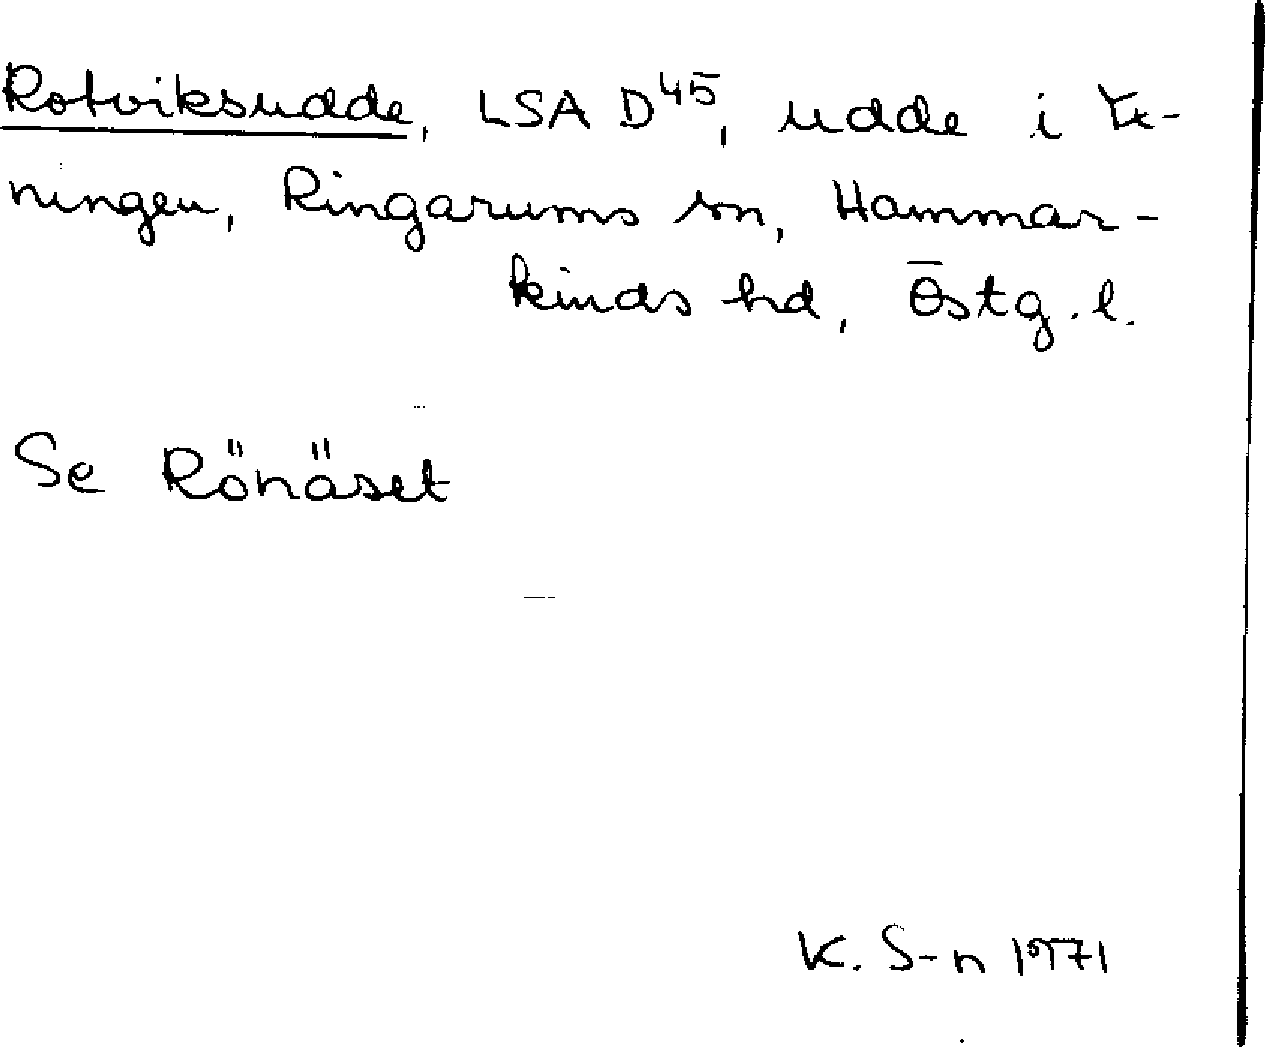 Rotviksudde, LSA D45, udde i Yx-
ningen, Ringarums sn, Hammar-
kinds hd, Östg. l.
Se Rönäset
K. S-n 1971